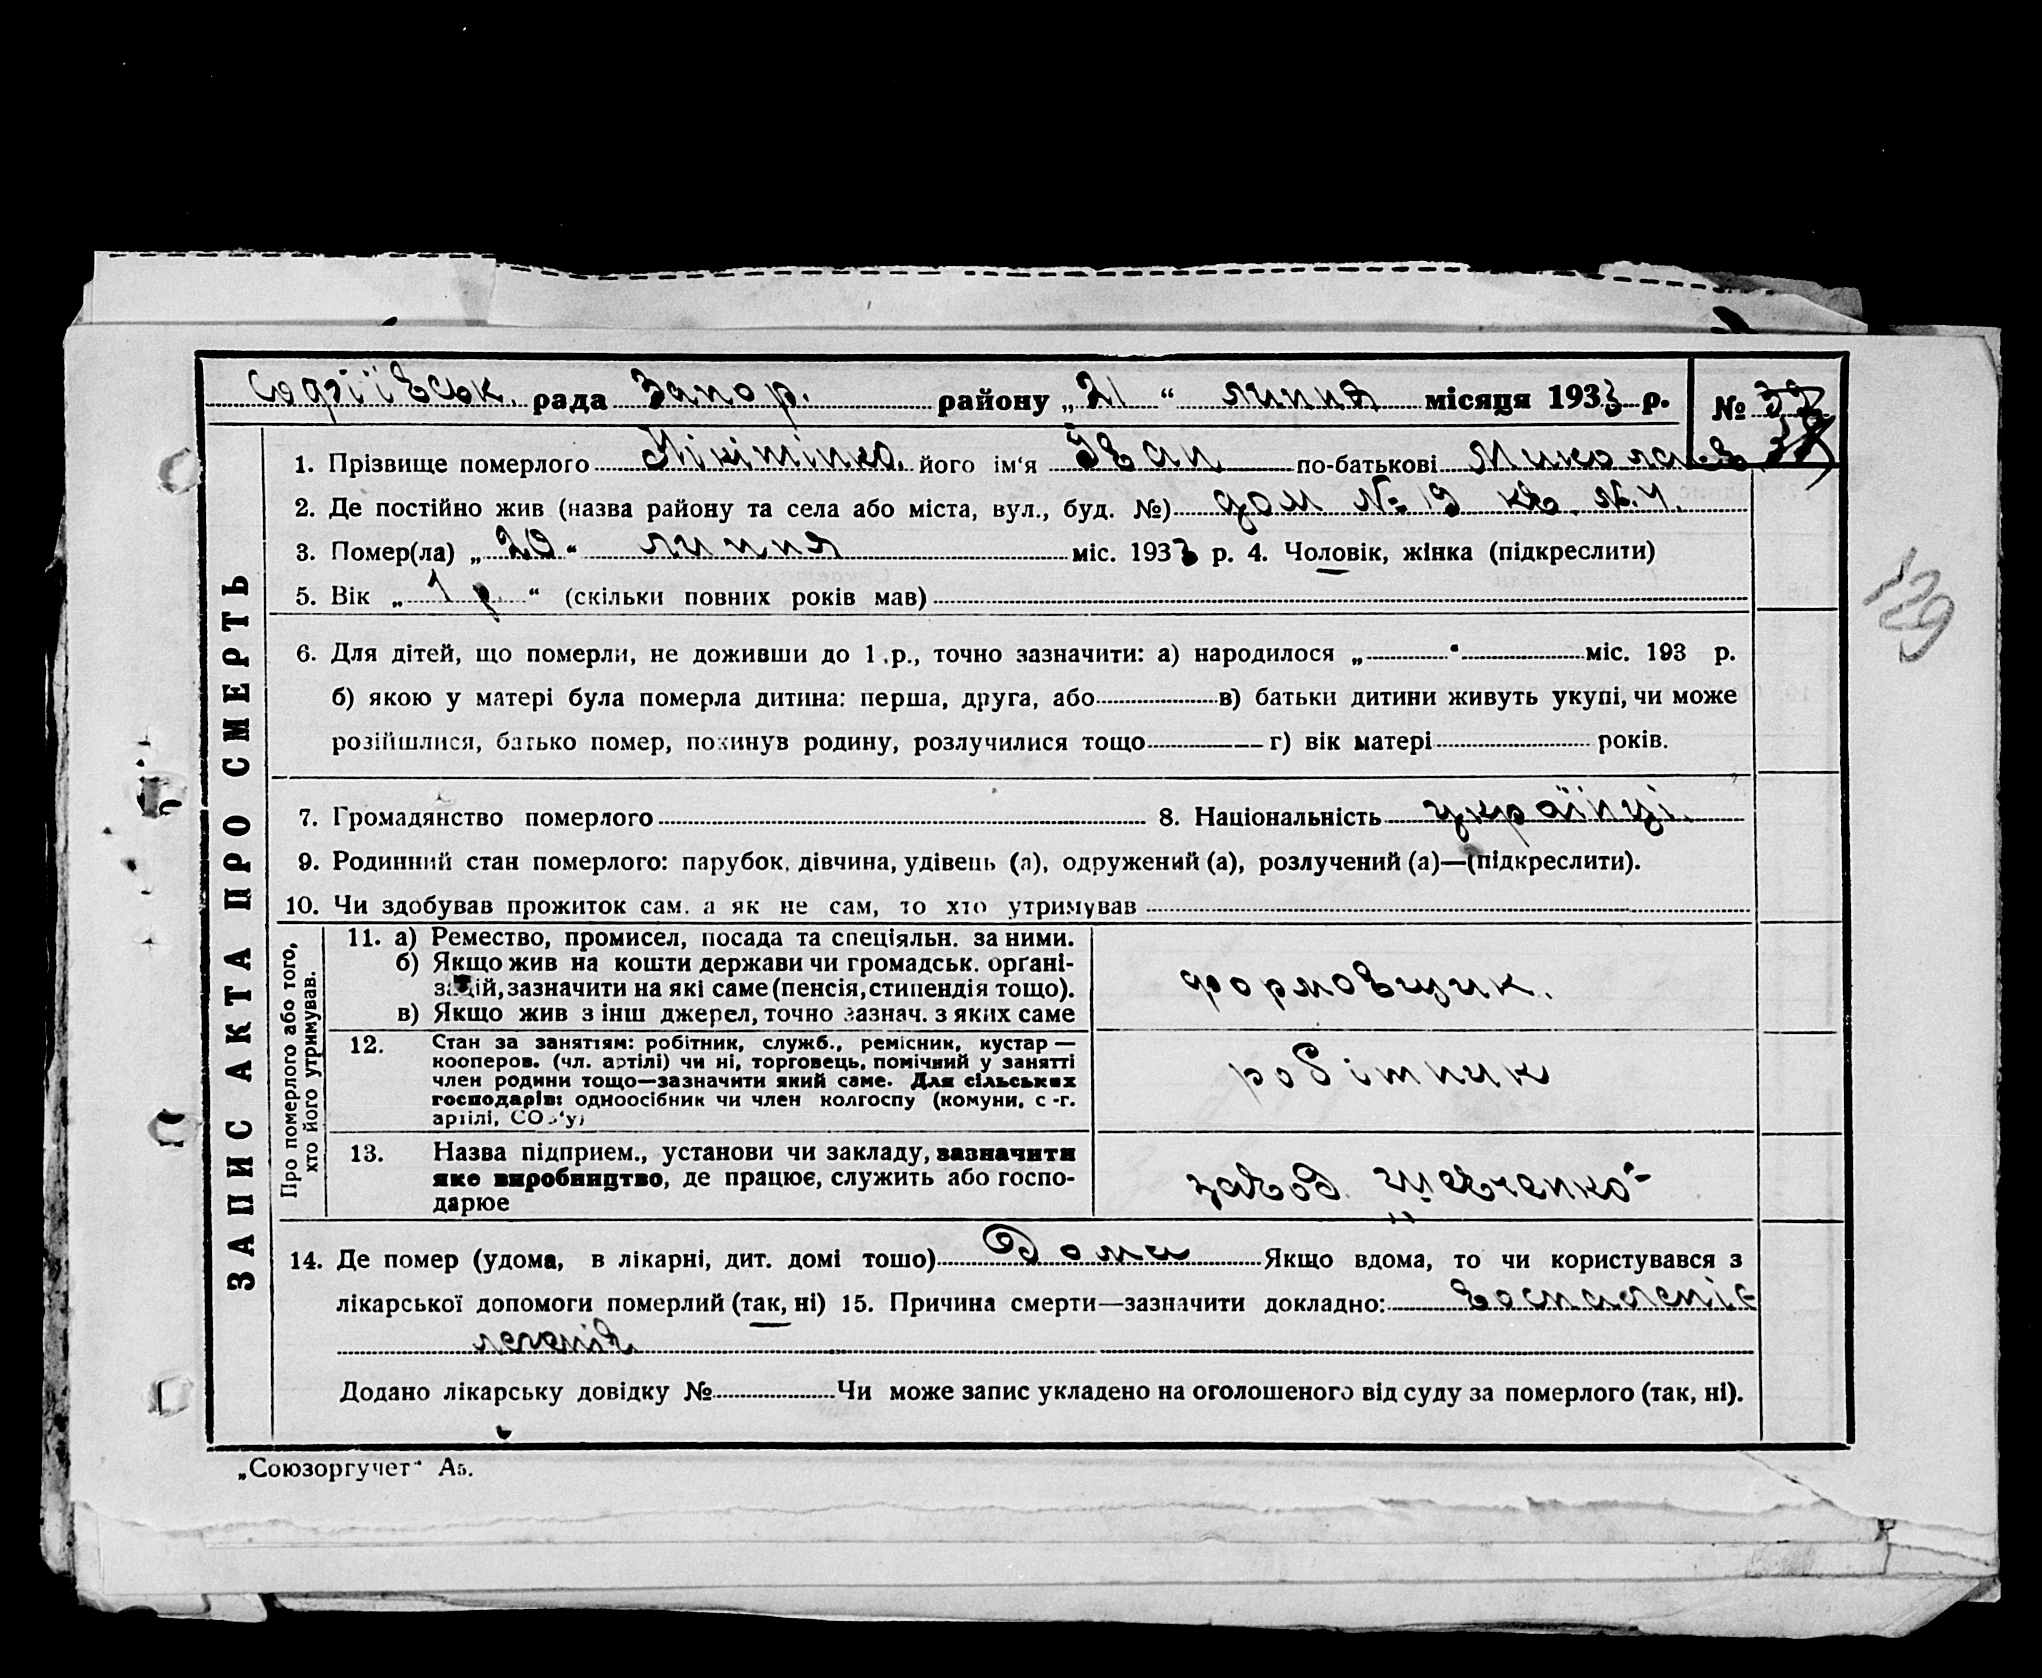 Софіївськ. рада Запор. району „21“ липня місяця 1933 р. № 37
38
1. Прізвище померлого Нікітінко його ім'я Іван по-батькові Миколаєв
2. Де постійно жив (назва району та села або міста, вул., буд. №) дом № 19 кв. №
3. Помер(ла) „20“ липня міс. 1933 р. 4. Чоловік, жінка (підкреслити)
5. Вік „1 р.“ (скільки повних років мав)
6. Для дітей, що померли, не доживши до 1 р., точно зазначити: а) народилося „ “ міс. 193 р.
б) якою у матері була померла дитина: перша, друга, або в) батьки дитини живуть укупі, чи може
розійшлися, батько помер, покинув родину, розлучилися тощо г) вік матері років.
7. Громадянство померлого 8. Національність українці
9. Родинний стан померлого: парубок, дівчина, удівець (а), одружений (а), розлучений (а)—(підкреслити).
10. Чи здобував прожиток сам, а як не сам, то хто утримував
ЗАПИС АКТА ПРО СМЕРТЬ
Про померлого або того, хто його утримував.
11. а) Ремество, промисел, посада та спеціяльн. за ними.
б) Якщо жив на кошти держави чи громадськ. орґані-
зацій, зазначити на які саме (пенсія, стипендія тощо).
в) Якщо жив з інш джерел, точно зазнач. з яких саме
формовщик.
12. Стан за заняттям: робітник, служб., ремісник, кустар —
кооперов. (чл. артілі) чи ні, торговець, помічний у занятті
член родини тощо—зазначити який саме. Для сільських
господарів: одноосібник чи член колгоспу (комуни, с.-г.
артілі, СОЗ'у)
робітник
13. Назва підприєм., установи чи закладу, зазначити
яке виробництво, де працює, служить або госпо-
дарює
завод Шевченко
14. Де помер (удома, в лікарні, дит. домі тошо) Дома Якщо вдома, то чи користувався з
лікарської допомоги померлий (так, ні) 15. Причина смерти—зазначити докладно: воспаленіє
легенів
Додано лікарську довідку № Чи може запис укладено на оголошеного від суду за померлого (так, ні).
„Союзоргучет“ А5.
129